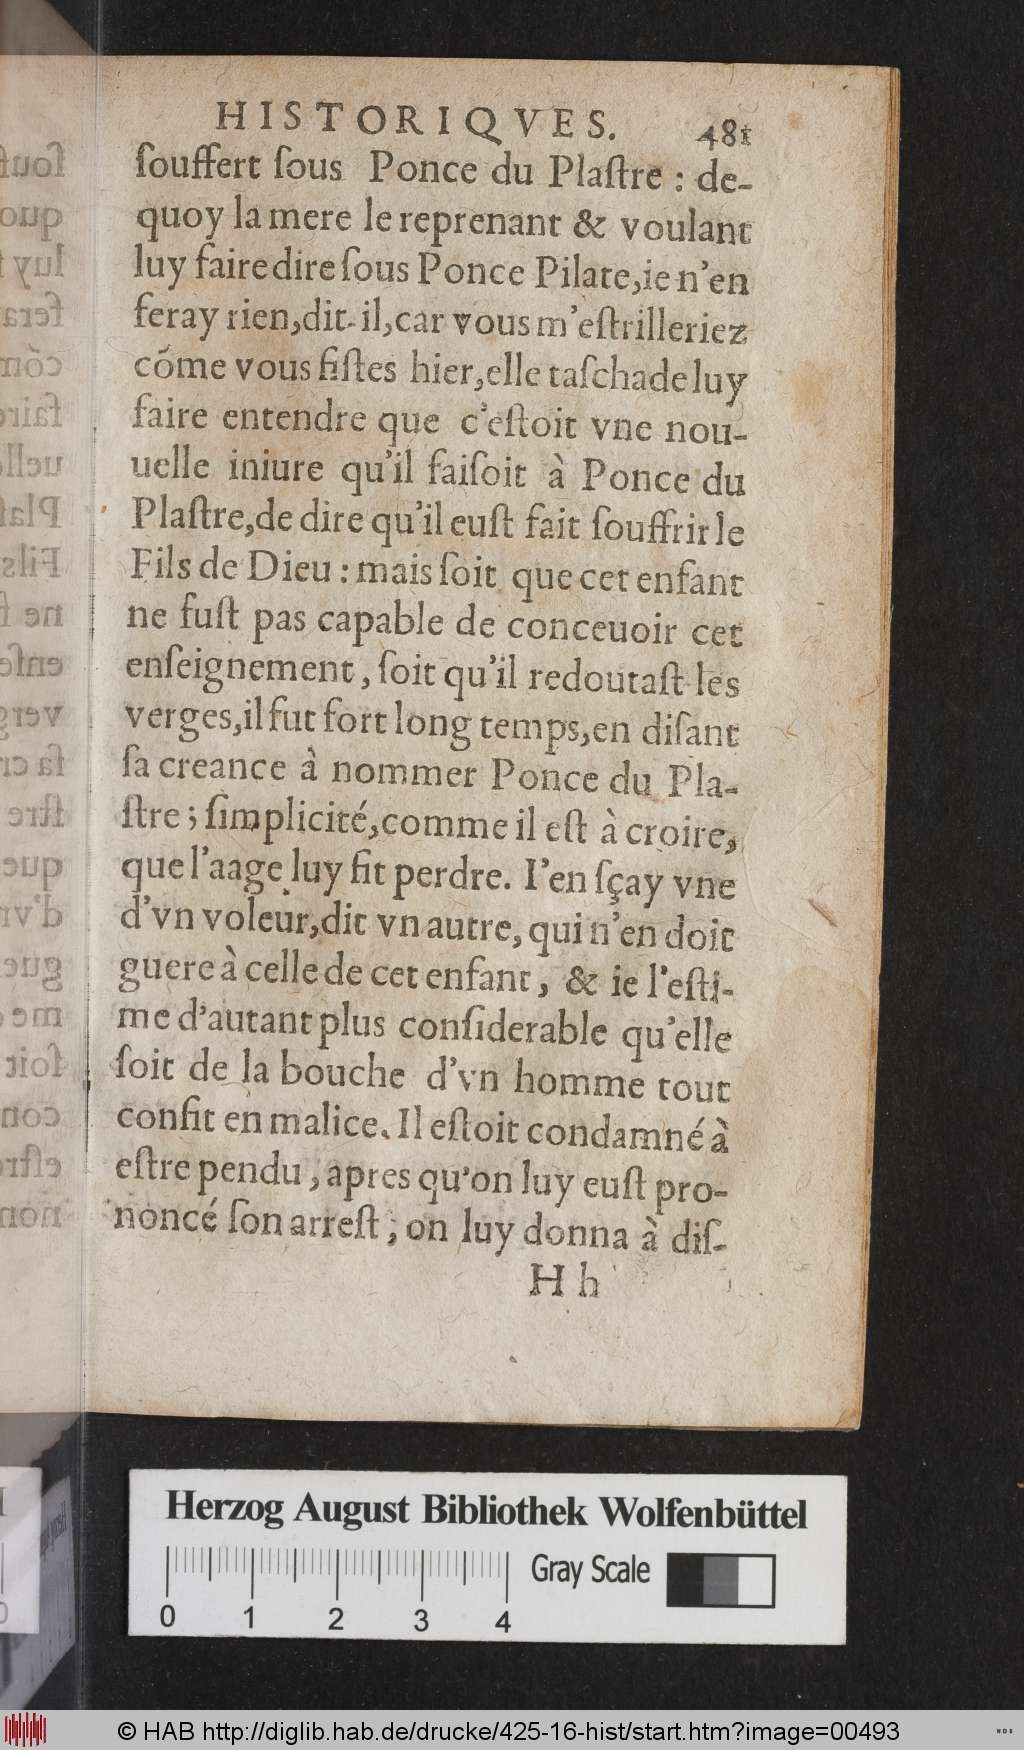 HISTORIQVES. 481
ſouffert ſous Ponce du Plaſtre : de-
quoy la mere le reprenant & voulant
luy faire dire ſous Ponce Pilate, ie n'en
feray rien, dit-il, car vous m'eſtrilleriez
cõme vous fiſtes hier, elle taſcha de luy
faire entendre que c'eſtoit vne nou-
uelle iniure qu'il faiſoit à Ponce du
Plaſtre, de dire qu'il euſt fait ſouffrir le
Fils de Dieu : mais ſoit que cet enfant
ne fuſt pas capable de conceuoir cet
enſeignement, ſoit qu'il redoutaſt les
verges, il fut fort long temps, en diſant
ſa creance à nommer Ponce du Pla-
ſtre ; ſimplicité, comme il eſt à croire,
que l'aage luy fit perdre. I'en ſçay vne
d'vn voleur, dit vn autre, qui n'en doit
guere à celle de cet enfant, & ie l'eſti-
me d'autant plus conſiderable qu'elle
ſoit de la bouche d'vn homme tout
confit en malice. Il eſtoit condamné à
eſtre pendu, apres qu'on luy euſt pro-
noncé ſon arreſt ; on luy donna à diſ-
H h
Herzog August Bibliothek Wolfenbüttel
Gray Scale
0 1 2 3 4
© HAB http://diglib.hab.de/drucke/425-16-hist/start.htm?image=00493